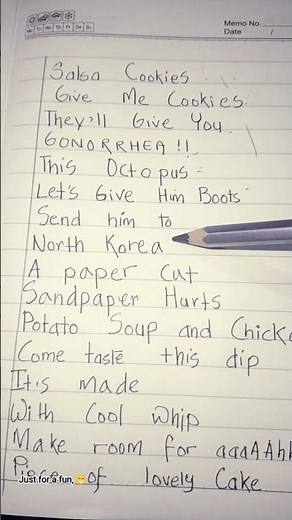 Memo No.
Date /
Mo Tu We Th Fr Sa Su
Salsa Cookies
Give Me Cookies
They'll Give You
GONORRHEA !!
This Octopus
Let's Give Him Boots
Send him to
North Korea
A paper cut
Sandpaper Hurts
Potato Soup and Chicke
Come taste this dip
It's made
With Cool Whip
Make room for aaaAAhh
Piece of lovely Cake
Just for a fun,😁